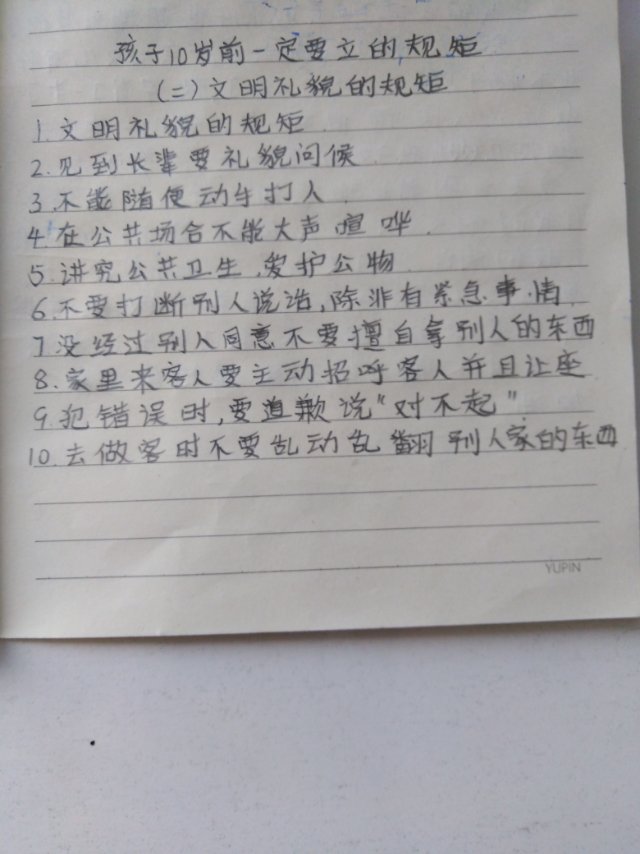 孩子10岁前一定要立的规矩
(二)文明礼貌的规矩
1.文明礼貌的规矩
2.见到长辈要礼貌问候
3.不能随便动手打人.
4.在公共场合不能大声喧哗.
5.讲究公共卫生,爱护公物
6.不要打断别人说话,除非有紧急事情
7.没经过别人同意不要擅自拿别人的东西
8.家里来客人要主动招呼客人并且让座
9.犯错误时,要道歉说"对不起"
10.去做客时不要乱动乱翻别人家的东西
YUPIN